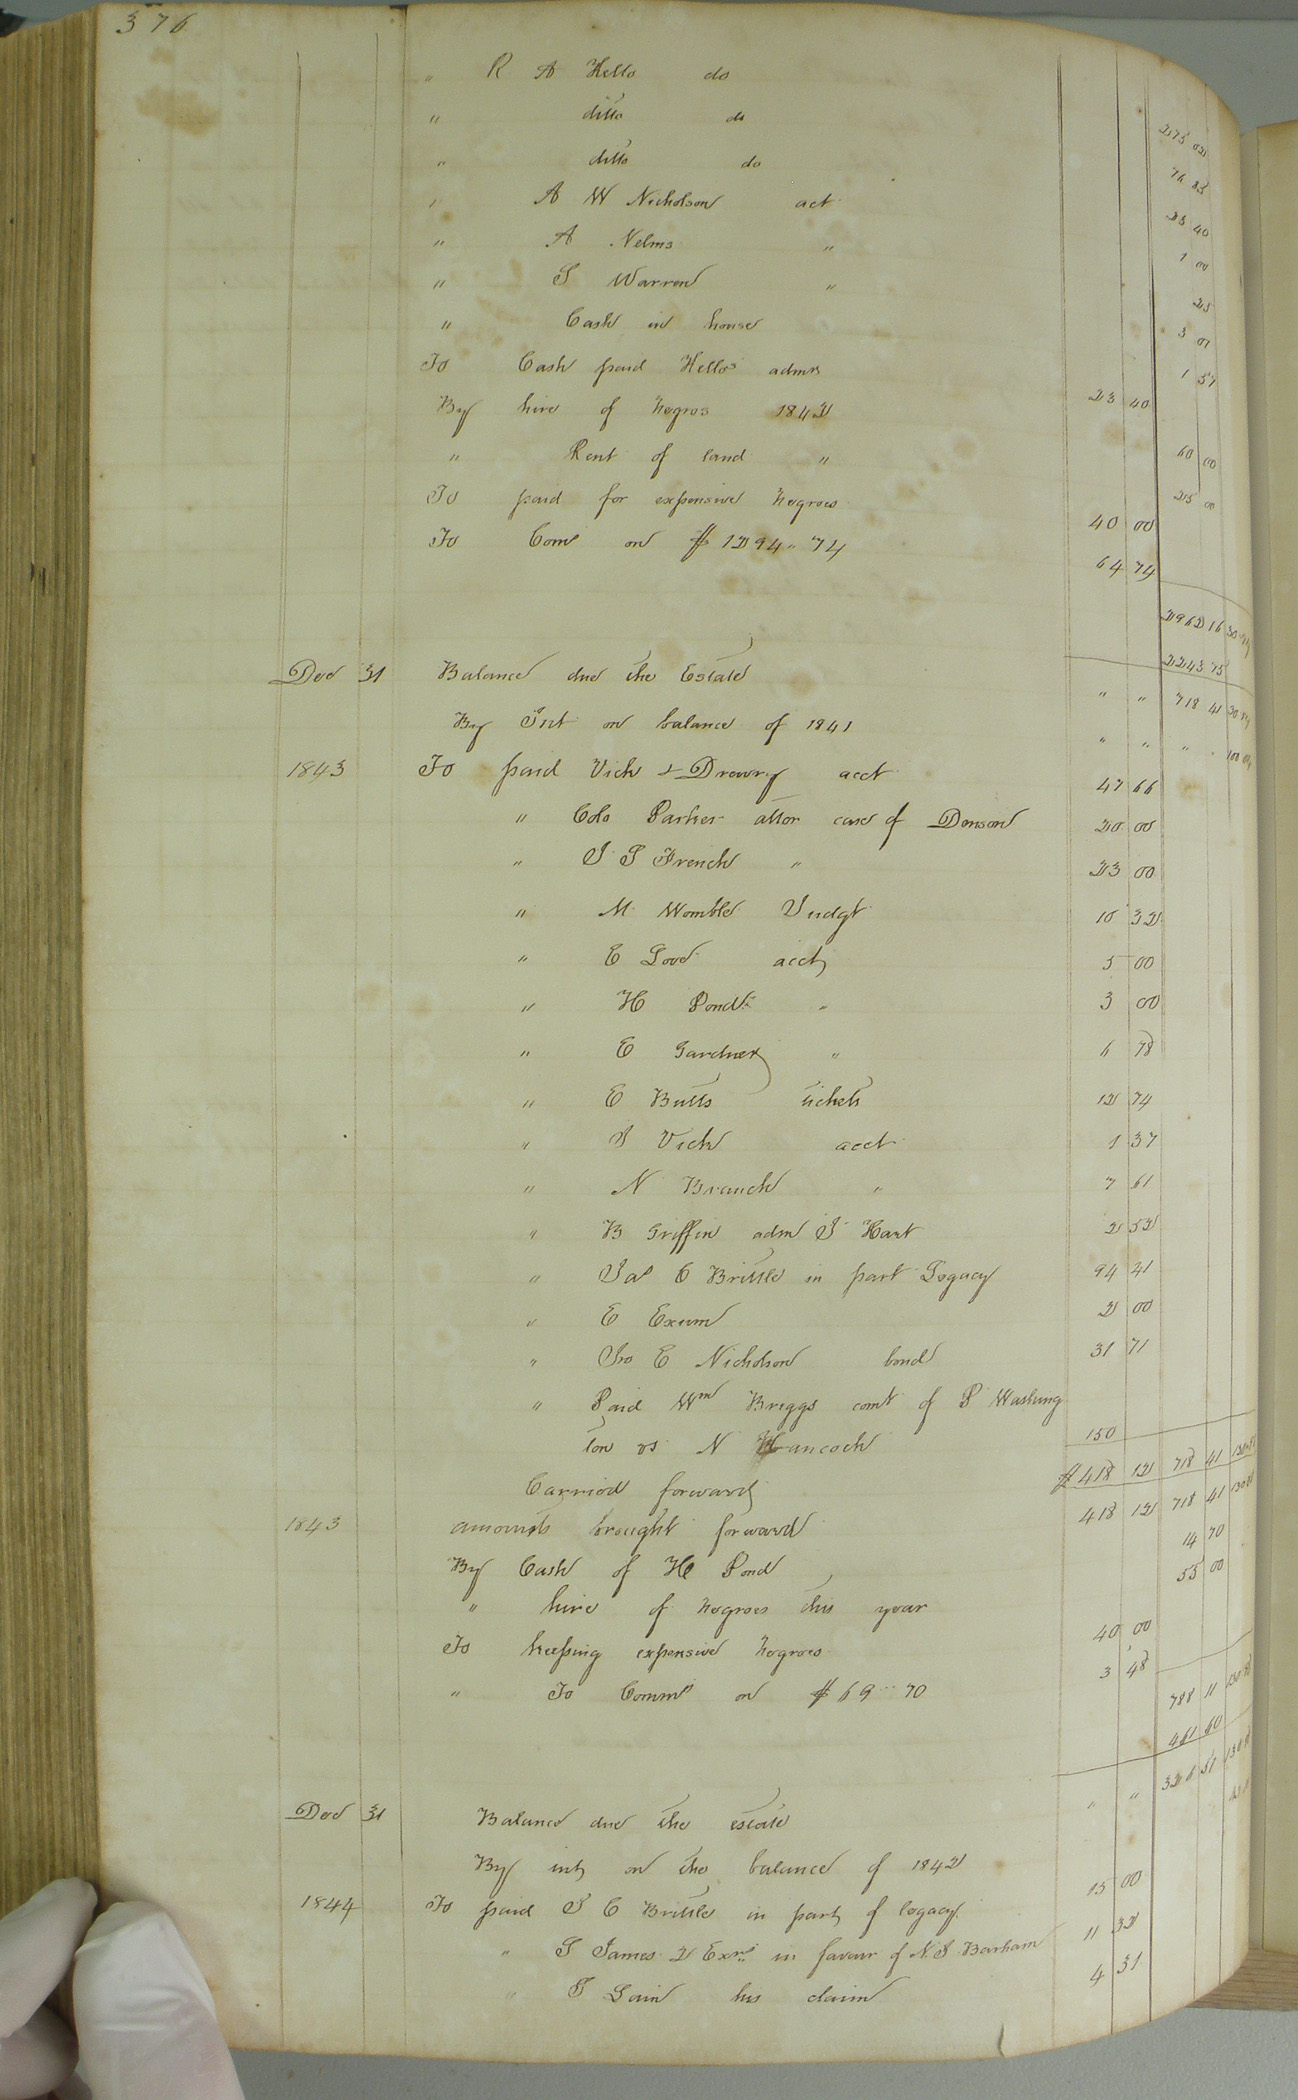 376
" R A Kello do 275 02
" ditto do 76 85
" ditto do 25 40
" A W Nicholson act 1 00
" A Nelms " 25
" S Warren " 3 01
" Cash in house 1 57
To Cash paid Kello admr 23 40
By hire of Negros 1842 60 00
" Rent of land " 25 00
To paid for expensive Negroes 40 00
To Coms on $1294" 74 64 74
2962 16
2243 75
Dec 31 Balance due the Estate " " 718 41
By Int on balance of 1841 " " "
1843 To paid Vick & Drewry acct 47 66
" Colo Parker attor case of Denson 20 00
" S S French " 23 00
" M Womble Judgt 10 32
" E Good acct 5 00
" H Pond " 3 00
" E Gardner " 6 78
" E Butts tickets 12 74
" J Vick acct 1 37
" N Branch " 7 61
" B Griffin adm S Hart 2 52
" Jas C Brittle in part Legacy 94 41
" E Exum 2 00
" Jno E Nicholson bond 31 71
" Paid Wm Briggs comt of P Washing
ton vs N Hancock 150
Carried forward $418 12 718 41
1843 amounts brought forward 418 12 718 41
By Cash of H Pond 14 70
" hire of Negroes this year 55 00
To keeping expensive Negroes 40 00
" To Comms on $69" 70 3 48
788 11
461 60
Dec 31 Balance due the estate " " 326 51
By int on the balance of 1842
1844 To paid J C Brittle in part of legacy 15 00
" S James 2 Exns in favour of N. S. Barham 11 32
" S Gain his claim 4 31